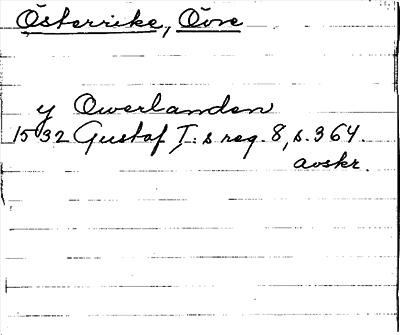 Österrike, Övre
y Owerlanden
1532 Gustaf I:s reg. 8, s. 364.
avskr.